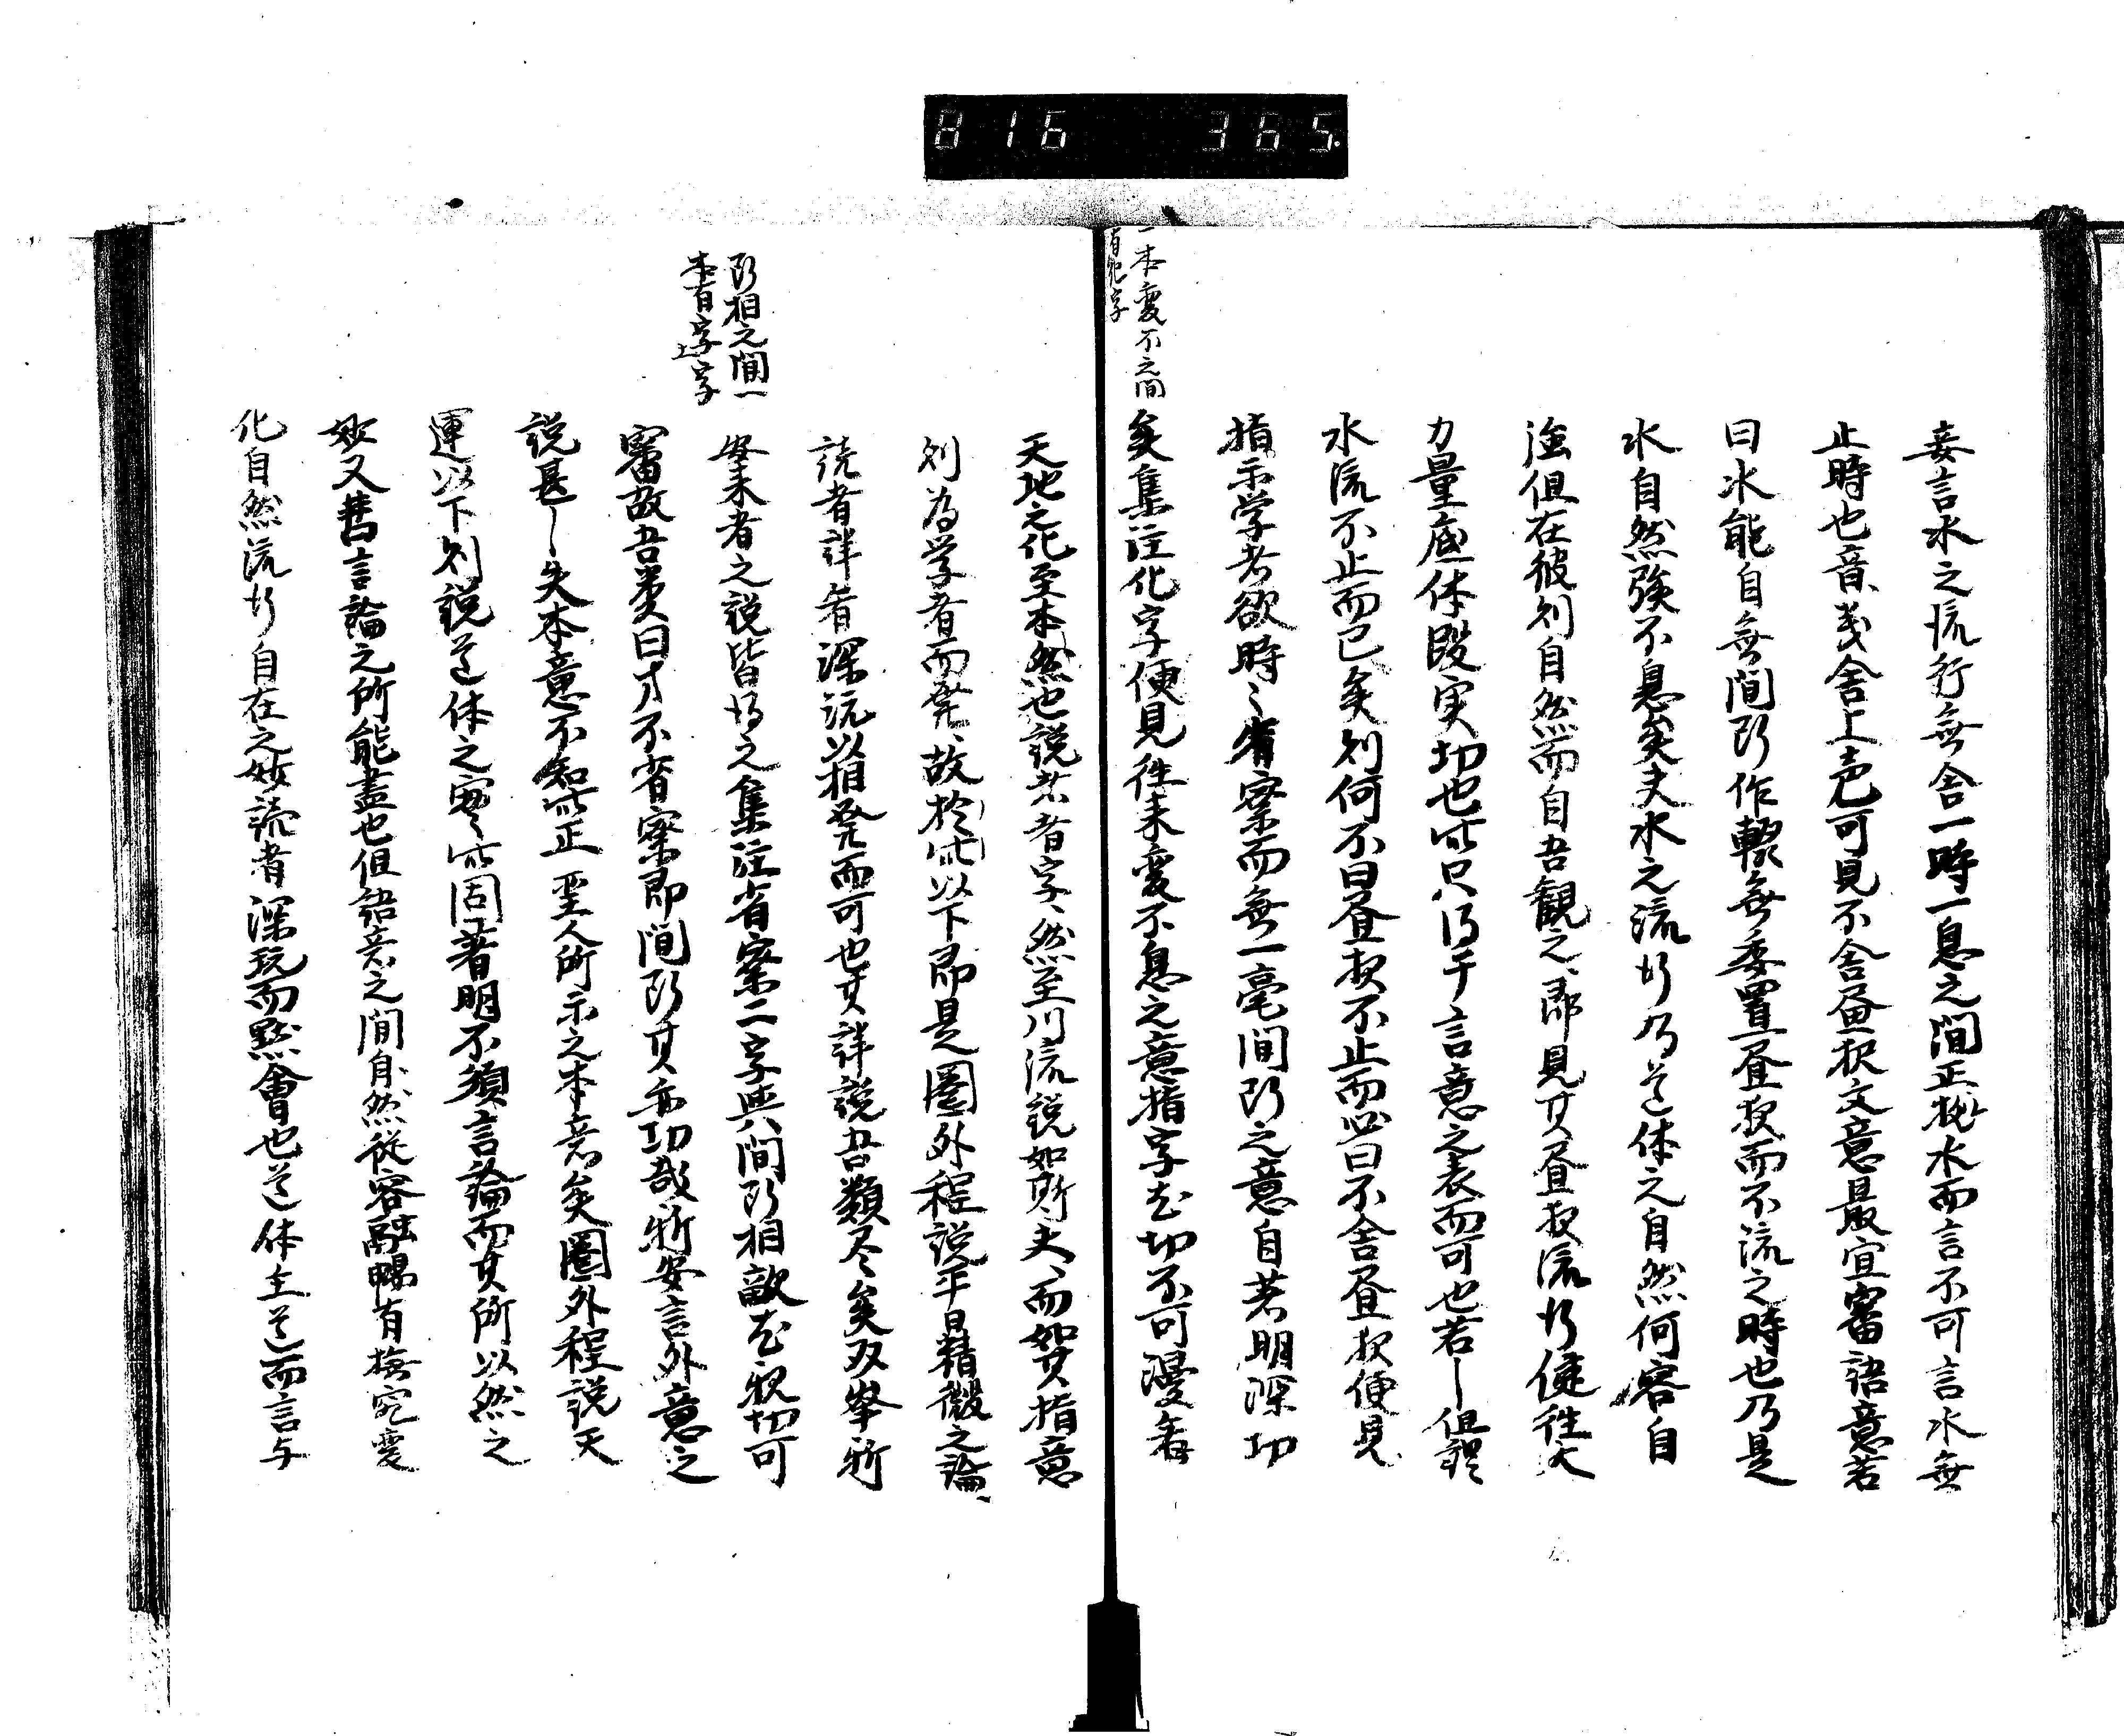 816 365
妄言水之流行無舎一時一息之間正挑水而言不可言水無
止時也音義舎上声可見不舎昼夜文意最宜審語意若
曰水能自無間断作輟無委置昼夜而不流之時也乃是
水自然強不息矣夫水之流行乃道体之自然何容自
強但在彼則自然而自吾観之即見其昼夜流行健往大
力量底体段実切也此只得于言意之表而可也若但説
水流不止而已矣則何不曰昼夜不止而必曰不舎昼夜便見
指示学者欲時々省察而無一毫間断之意自著明深切
矣集註化字便見往来変不息之意指字尤切不可漫看
一本変不之間
有化字
天地之化至本然也説者字然至川流説如斯夫而如其指意
則為学者而発故於此以下即是圏外程説平日精微之論
読者詳看深玩以相発而可也其詳説吾類尽矣双峯新
安朱者之説皆得之集註省察二字与間断相敵尤親切可
断相之間一
本有字字
審故吾類曰才不省察即間断其亦切哉新安言外意之
説甚失本意不知此正聖人所示之本意矣圏外程説天
運以下則説道体之実此固著明不須言論而其所以然之
妙又豈言論之所能尽也但語意之間自然従容融暢有無窮変
化自然流行自在之妙読者深玩而黙会也道体主道而言与